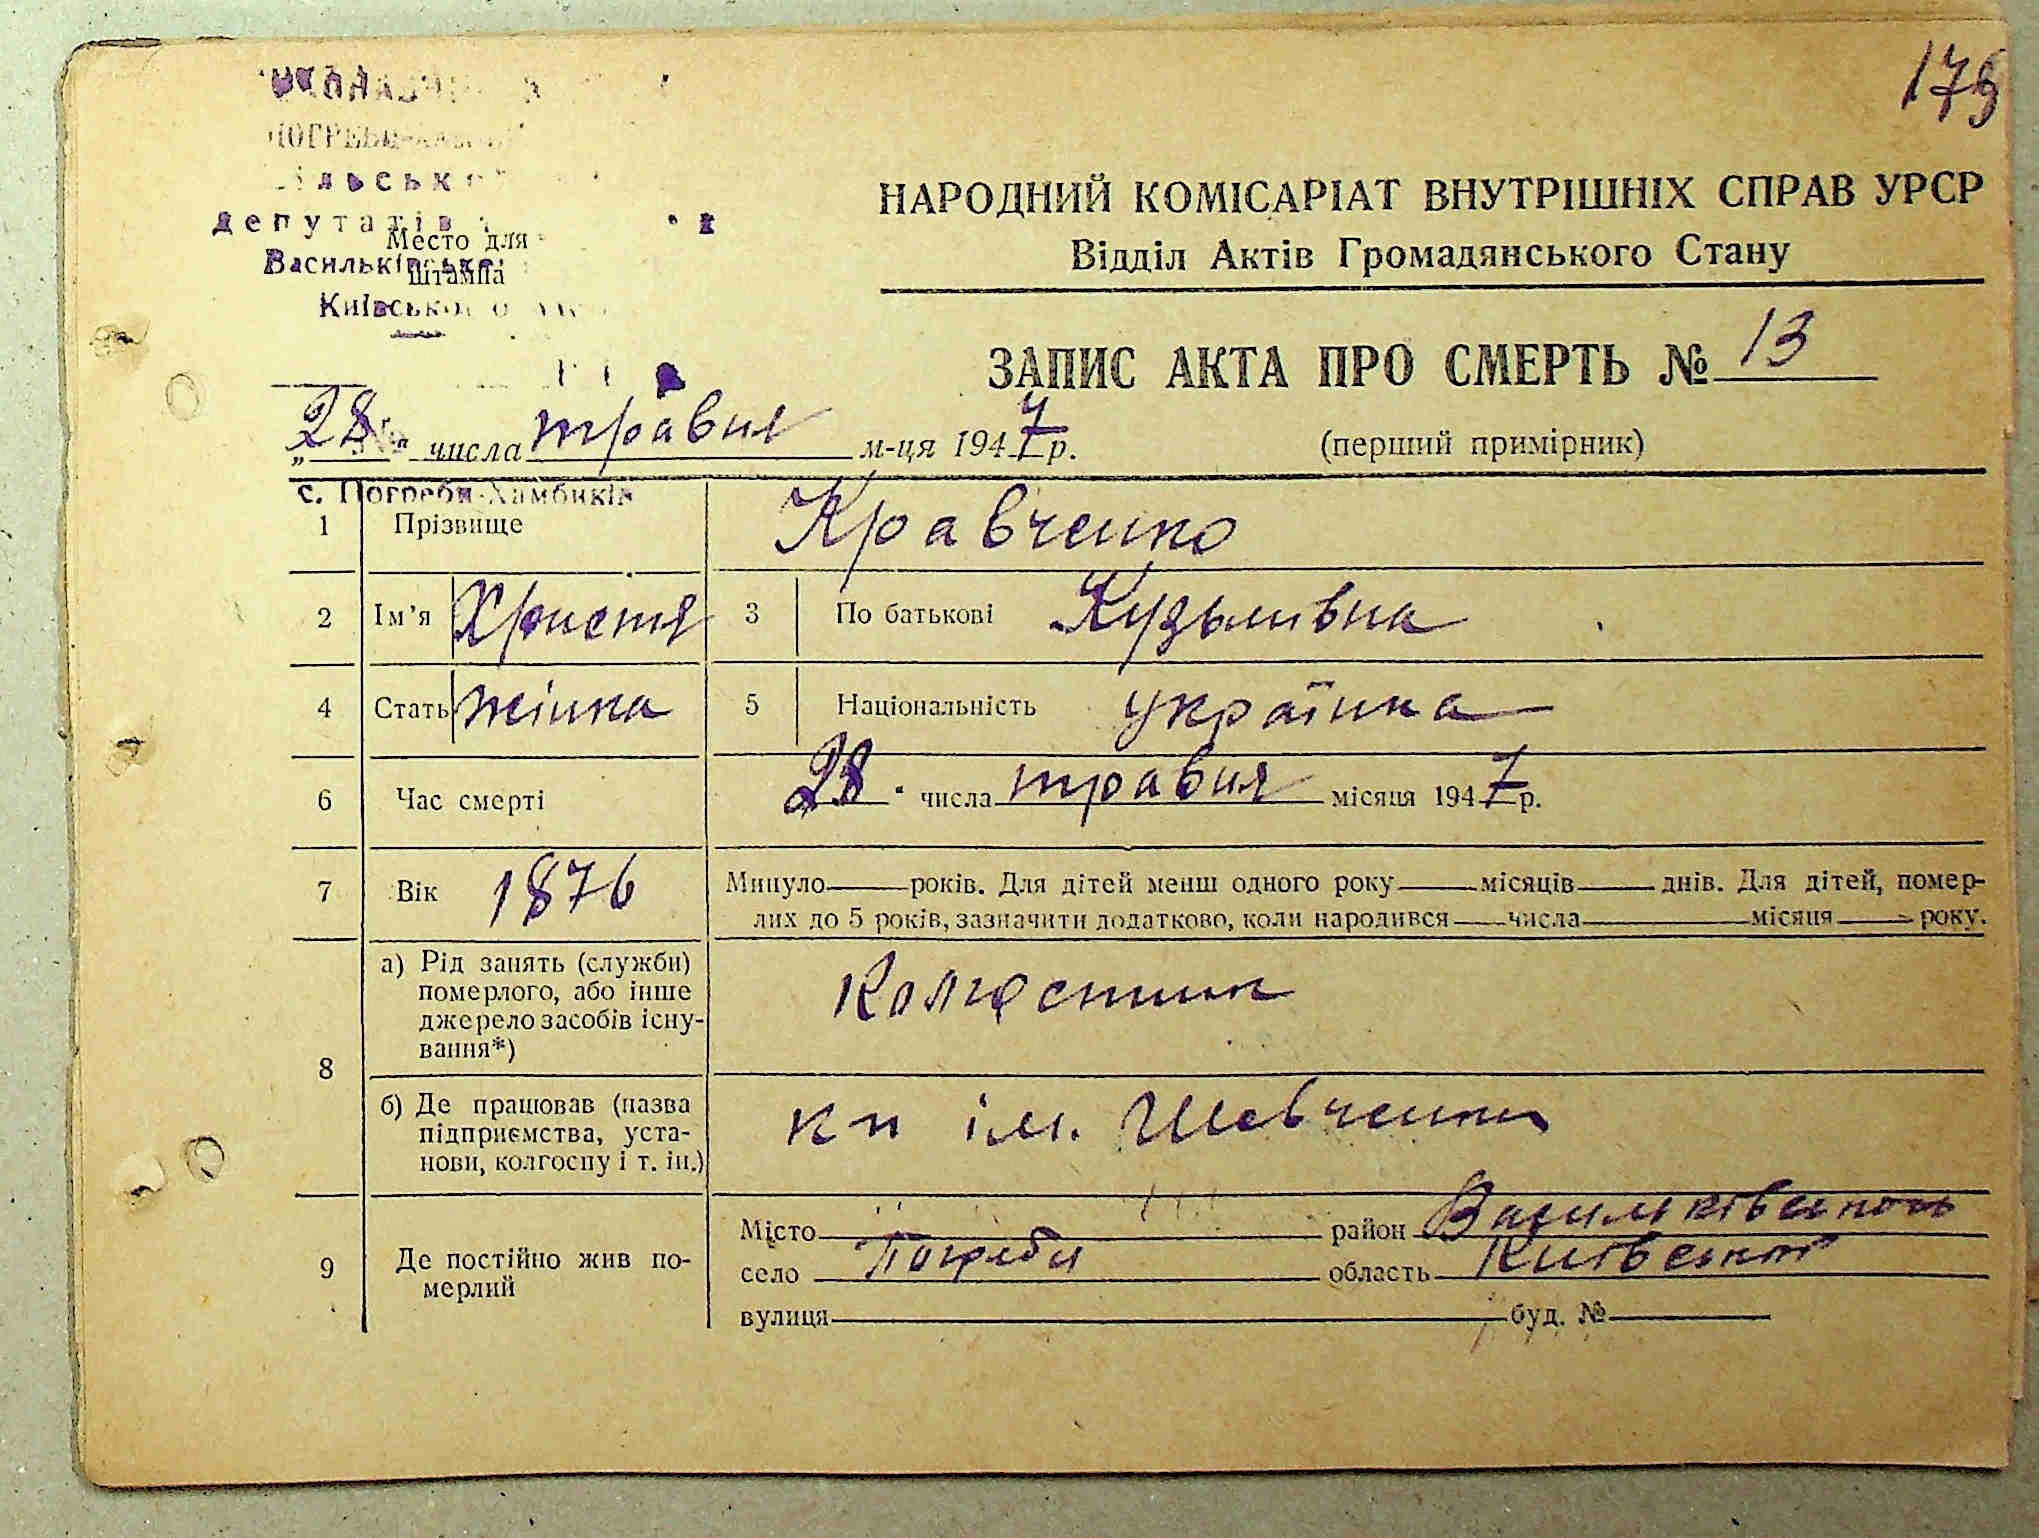 175
депутатів
Васильківсько
Київського
Место для
штампа
НАРОДНИЙ КОМІСАРІАТ ВНУТРІШНІХ СПРАВ УРСР
Відділ Актів Громадянського Стану
ЗАПИС АКТА ПРО СМЕРТЬ № 13
„28" числа травня м-ця 1947 р.
(перший примірник)
с. Погреби-Хамбиків
1 Прізвище Кравченко
2 Ім'я Христя 3 По батькові Кузьмівна
4 Стать жінка 5 Національність українка
6 Час смерті 28 " числа травня місяця 1947 р.
7 Вік 1876 Минуло років. Для дітей менш одного року місяців днів. Для дітей, помер-
лих до 5 років, зазначити додатково, коли народився числа місяця року.
8 а) Рід занять (служби)
померлого, або інше
джерело засобів існу-
вання*)
Колгоспник
б) Де працював (назва
підприємства, уста-
нови, колгоспу і т. ін.)
кп ім. Шевченка
9 Де постійно жив по-
мерлий
Місто район Васильківський
село Погреби область Київської
вулиця буд. №